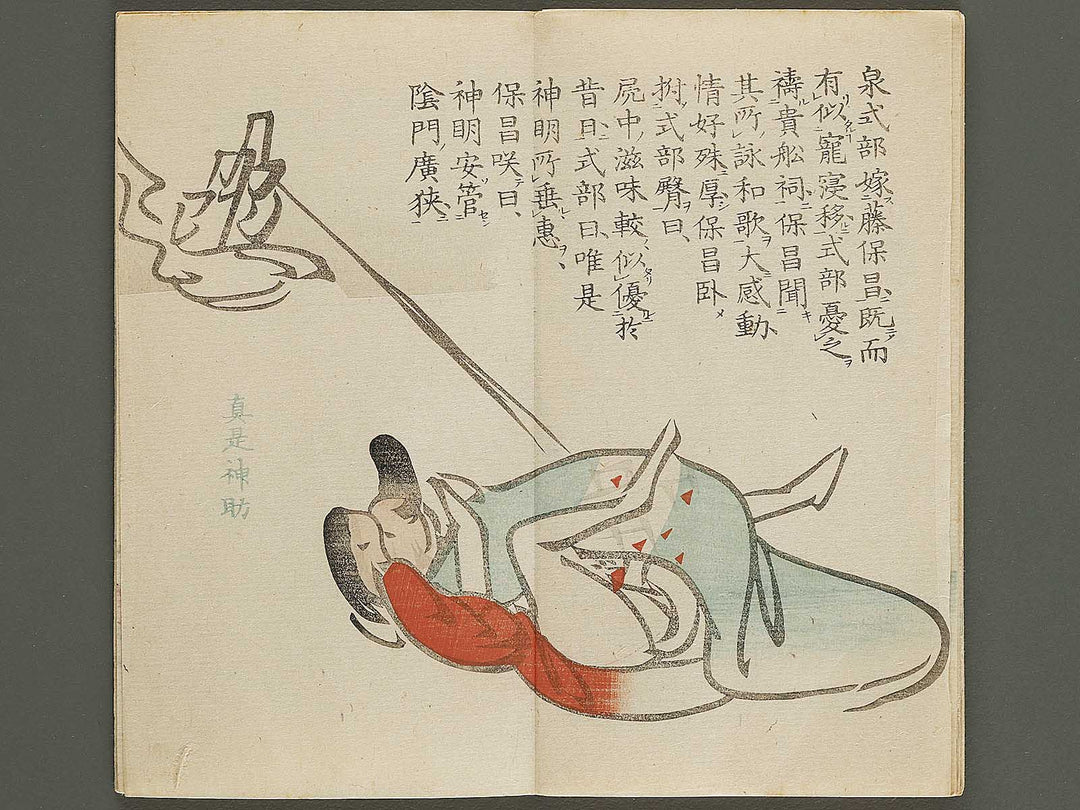 泉式部嫁藤保昌既而
有似寵寝移式部憂之
禱貴舩祠保昌聞
其所詠和歌大感動
情好殊厚保昌卧
拊式部臀曰、
屍中滋味較似優於
昔日式部曰唯是
神明所垂惠、
保昌咲曰、
神明安管
陰門廣狭
真是神助